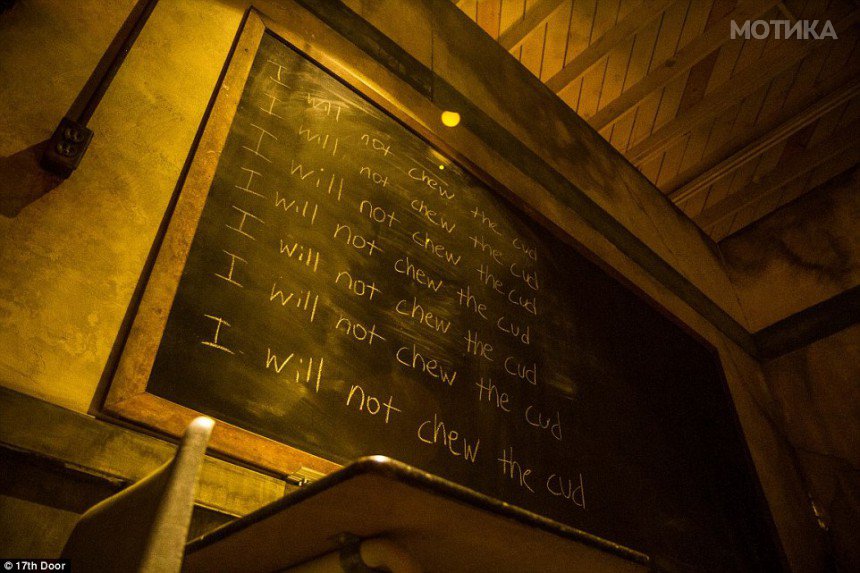 МОТИКА
I will not chew the cud
I will not chew the cud
I will not chew the cud
I will not chew the cud
I will not chew the cud
I will not chew the cud
I will not chew the cud
© 17th Door